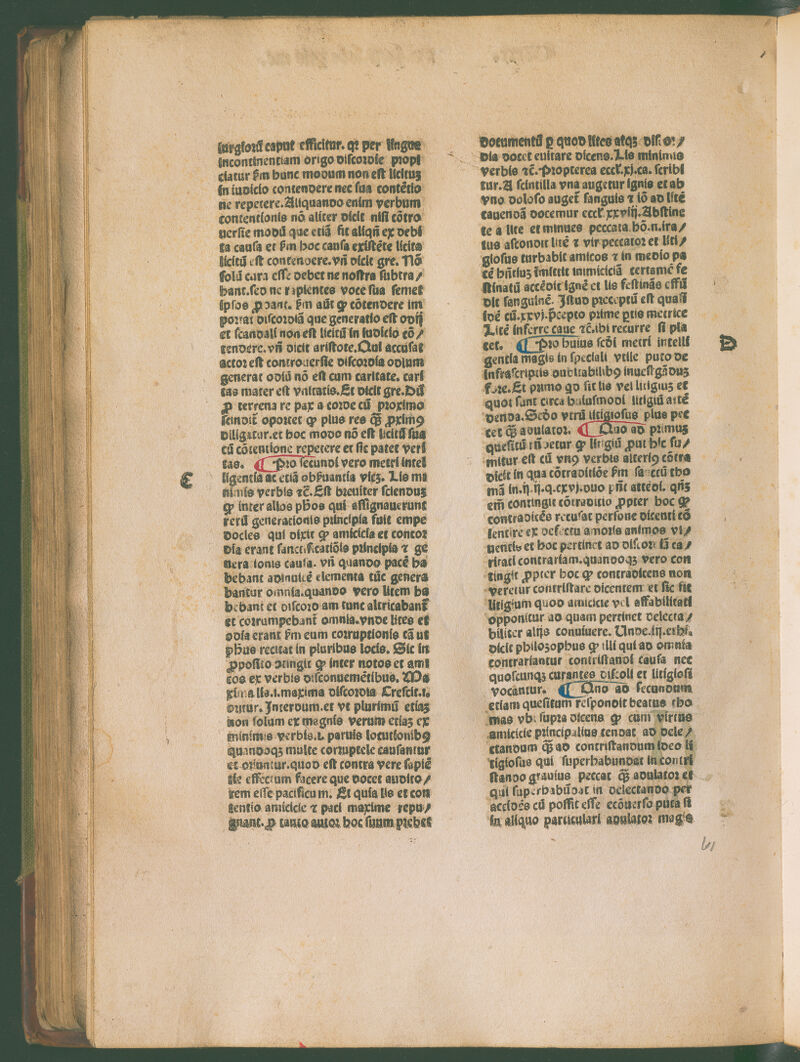 iurgioꝝ caput efficitur. qꝛ per lingue
incontinentiam origo discordie propi
ciatur ẜm hunc modum non est licitus
in iudicio contendere nec sua contētio
ne repetere. Aliquando enim verbum
contentionis nō aliter dicit nisi cōtro
uersie modū que etiā fit aliqñ ex debi
ta causa et ẜm hoc causa existēte licita
licitū est contendere. vñ dicit gre. Nō
solū cura esse debet ne nostra subtra/
hant. sed ne rapientes voce sua semet
ipsos ꝑdant. ẜm aūt ꝙ cōtendere im
portat discordiā que generatio est odij
et scandali non est licitū in iudicio cō/
tendere. vñ dicit aristote. Qui accusat
actor est controuersie discordia odium
generat odiū nō est cum caritate. cari
tas mater est vnitatis. Et dicit gre. Dū
ꝓ terrena re pax a corde cū proximo
scindit̄ oportet ꝙ plus res q̄ꝫ ꝓximꝰ
diligatur. et hoc modo nō est licitū sua
cū cōtentione repetere et sic patet veri
tas. ¶ Pro secundi vero metri intel
ligentia ac etiā obẜuantia viꝫ. Lis mi
nimis verbis ⁊c̄. Est breuiter scienduꝫ
ꝙ inter alios ph̄os qui assignauerunt
rerū generationis principia fuit empe
docles qui dixit ꝙ amicicia et concor
dia erant sanctificatiōis principia ⁊ ge
nerationis causa. vñ quando pacē ha
bebant adinuicē elementa tūc genera
bantur omnia. quando vero litem ha
bebant et discordiam tunc altricabant̄
et corrumpebant̄ omnia. vnde lites et
odia erant ẜm eum corruptionis cā ut
ph̄us recitat in pluribus locis. Sic in
ꝓposito ꝯtingit ꝙ inter notos et ami
cos ex verbis disconuenietibus. Ma
xima lis. i. maxima discordia Crescit. i.
oritur. Interdum. et vt plurimū etiaꝫ
non solum ex magnis verum etiaꝫ ex
minimis verbis. i. paruis locutionibꝰ
quandoqꝫ multe corruptele causantur
et oriuntur. quod est contra vere sapiē
tie effectum facere que docet audito/
rem esse pacificum. Et quia lis et con
tentio amicicie ⁊ paci maxime repu/
gnant. ꝓ tanto autor hoc suum prebet
C
documentū ꝑ quod lites atqꝫ discor/
dia docet euitare dicens. Lis minimis
verbis ⁊c̄. Propterea eccl̓. xj. ca. scribi
tur. A scintilla vna augetur ignis et ab
vno doloso auget̄ sanguis ⁊ iō ad litē
cauendā docemur eccl̓. xxviij. Abstine
te a lite et minues peccata. hō. n. ira/
tus ascendit litē ⁊ vir peccator et liti/
giosus turbabit amicos ⁊ in medio pa
cē hn̄tiuꝫ īmittit inimiciciā certamē fe
stinatū accēdit ignē et lis festinās effū
dit sanguinē. Istud preceptū est quasi
idē cū. xxvj. p̄cepto prime ꝑtis metrice
Litē inferre caue ⁊c̄. ibi recurre si pla
cet. ¶ Pro huius scd̓i metri intelli
gentia magis in speciali vtile puto de
infrascriptis dubitabilibꝰ inuestigādus
fore. Et primo qd̓ sit lis vel litigiuꝫ et
quot sunt circa huiusmodi litigiū atte
denda. Scd̓o vtrū litigiosus plus pec
cet q̄ꝫ adulator. ¶ Quo ad primuꝫ
quesitū tn̄ detur ꝙ litigiū ꝓut hic su/
mitur est cū vnꝰ verbis alteriꝰ cōtra
dicit in qua cōtradictiōe ẜm sanctū tho
mā in. ij. ij. q. cxvj. duo sn̄t attēdi. qn̄ꝫ
em̄ contingit cōtradictio ꝓpter hoc ꝙ
contradicēs recusat persone dicenti cō
sentire ex defectu amoris animos vi/
uentis et hoc pertinet ad discordiā ca/
ritati contrariam. quandoqꝫ vero con
tingit ꝓpter hoc ꝙ contradicens non
veretur contristare dicentem et sic fit
litigium quod amicicie vel affabilitati
opponitur ad quam pertinet delecta/
biliter alijs conuiuere. Unde. iiij. ethi.
dicit philosophus ꝙ illi qui ad omnia
contrariantur contristandi causa nec
quoscunqꝫ curantes discoli et litigiosi
vocantur. ¶ Quo ad secundum
etiam quesitum respondit beatus tho
mas vbi supra dicens ꝙ cum virtus
amicicie principalius tendat ad dele/
ctandum q̄ꝫ ad contristandum ideo li
tigiosus qui superhabundat in contri
stando grauius peccat q̄ꝫ adulator et
qui superhabūdat in delectando per
accidēs cū possit esse ecōuerso puta si
in aliquo particulari adulator magis
D